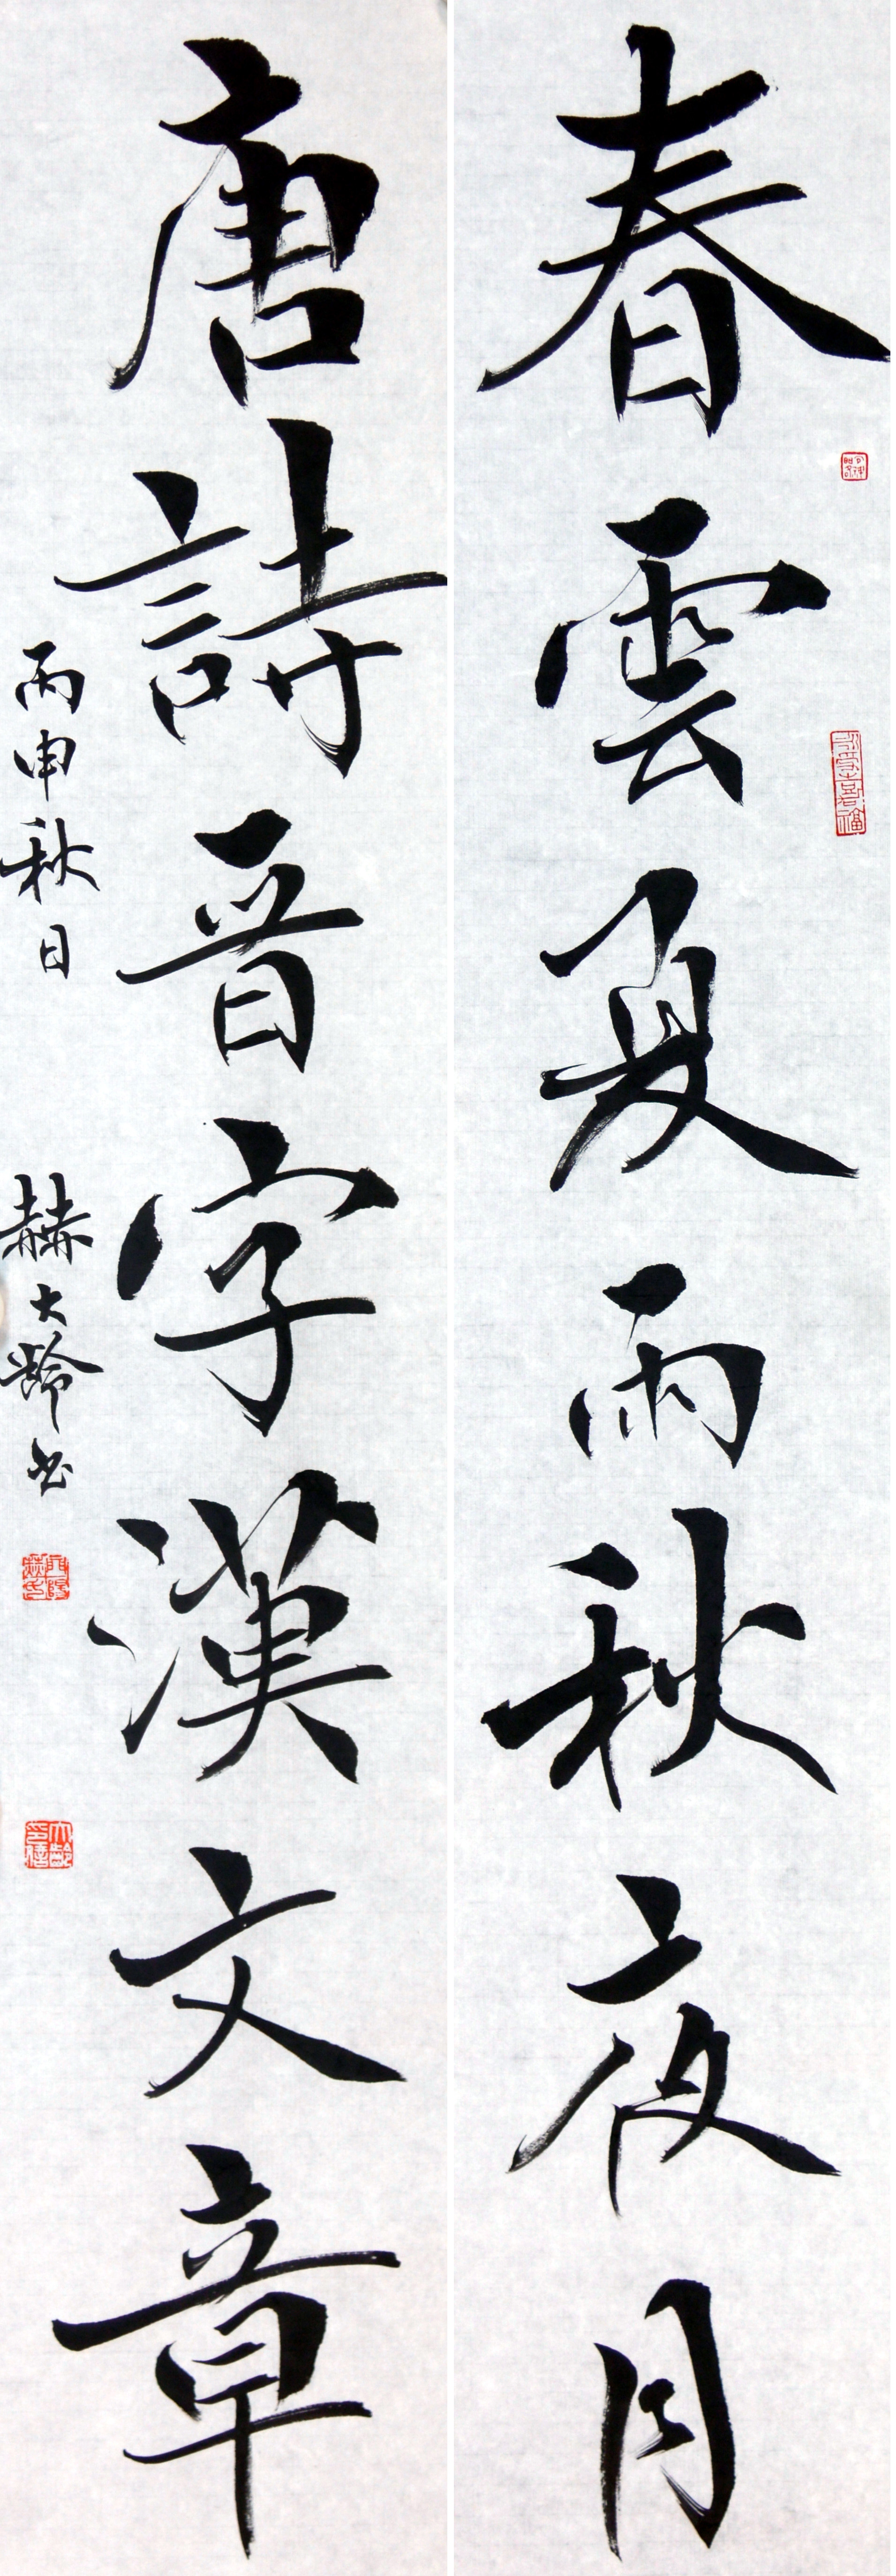 春雲夏雨秋夜月
唐詩晉字漢文章
丙申秋日 赫大齡书